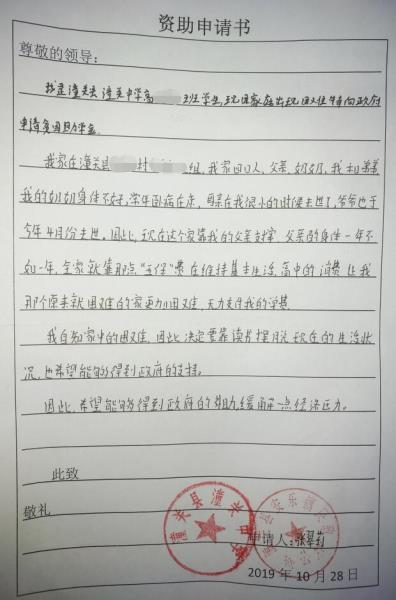 资助申请书
尊敬的领导:
我是潼关县潼关中学高 班学生,现因家庭出现困难特向政府
申请贫困助学金。
我家在潼关县 村 组,我家四口人,父亲、奶奶、我和弟弟
我的奶奶身体不好,常年卧病在床,母亲在我很小的时候去世了,爷爷也于
今年4月份去世。因此,现在这个家靠我的父亲支撑,父亲的身体一年不
如一年,全家就靠那点“低保”费在维持基本生活,高中的消费让我
那个原来就困难的家更加困难,无力支付我的学费。
我自知家中的困难,因此决定要靠读书摆脱现在的生活状
况,也希望能够得到政府的支持。
因此,希望能够得到政府的帮助,缓解一点经济压力。
此致
敬礼
潼关县潼关
申请人:张翠莉
2019年10月28日